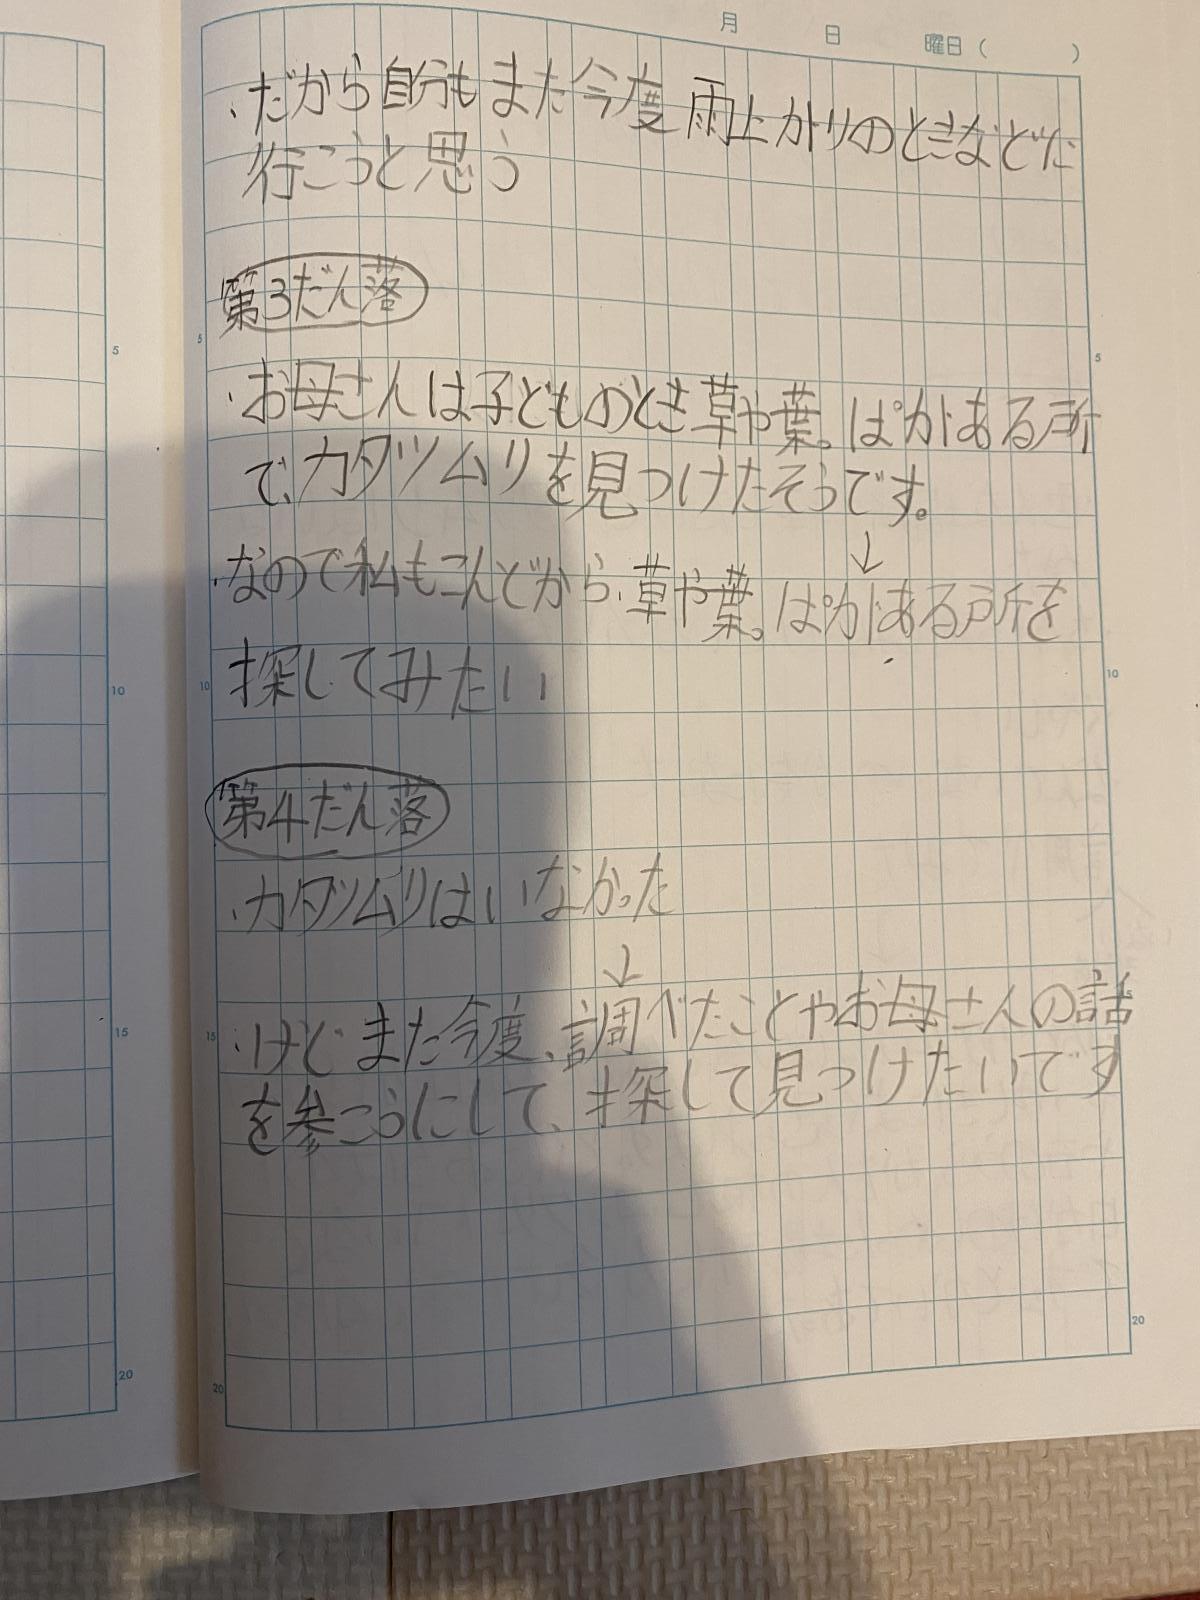 月 日 曜日( )
・だから自分もまた今度雨上がりのときなどに
行こうと思う
第3だん落
・お母さんは子どものとき草や葉。ぱがある所
で、カタツムリを見つけたそうです。
↓
・なので私もこんどから草や葉。ぱがある所を
探してみたい
第4だん落
・カタツムリはいなかった
↓
・けどまた今度、調べたことやお母さんの話
を参こうにして、探して見つけたいです
5
10
15
20
5
10
15
20
5
10
15
20